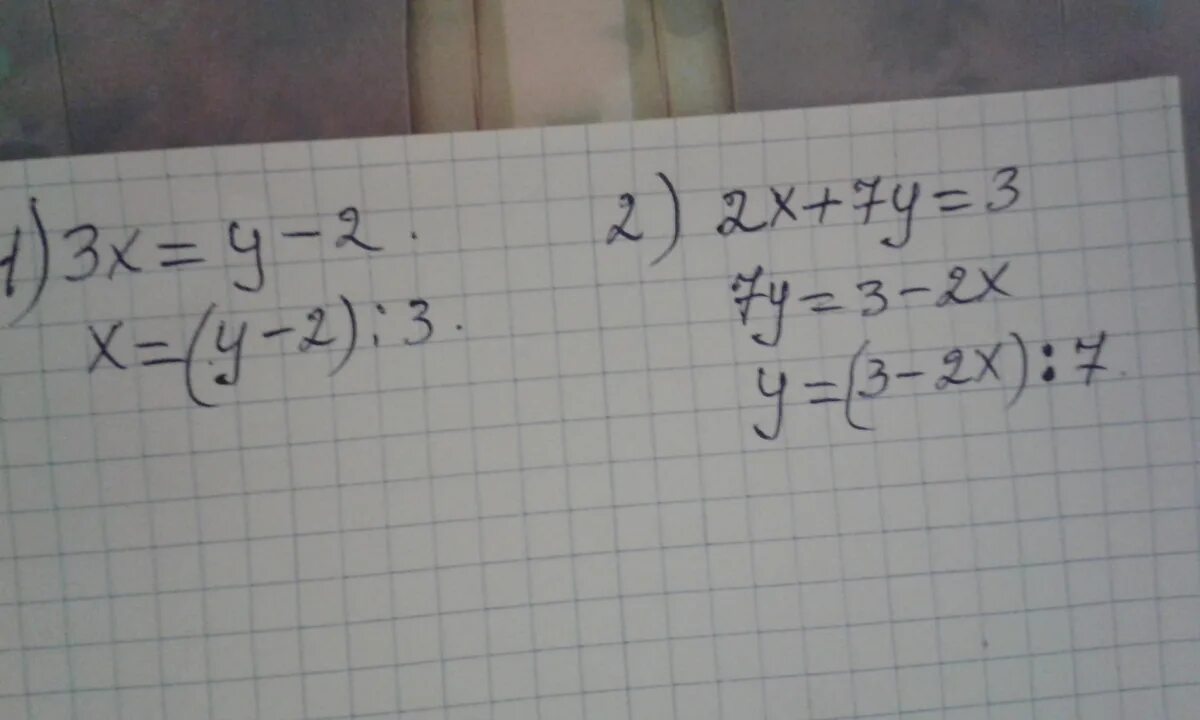 1) 3x = y - 2.
x = (y - 2) : 3.
2) 2x + 7y = 3
7y = 3 - 2x
y = (3 - 2x) : 7.